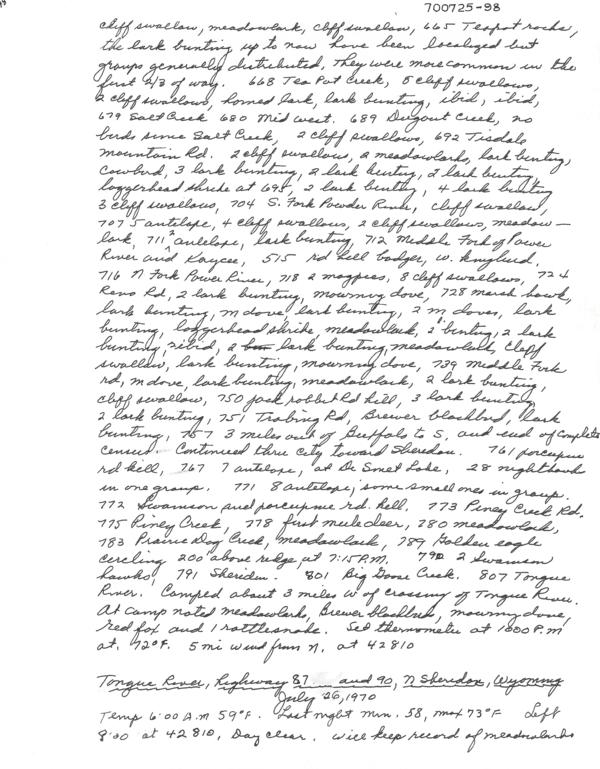 700725-98
cliff swallow, meadowlark, cliff swallow, 665 Teapot rocks,
the lark bunting up to now have been localized but
groups generally distributed. They were more common in the
first 2/3 of way. 668 Tea Pot Creek, 5 cliff swallows,
2 cliff swallows, horned lark, lark bunting, ibid, ibid,
679 Salt Creek 680 Midwest. 689 Dugout Creek, no
birds since Salt Creek, 2 cliff swallows, 692 Tisdale
Mountain Rd. 2 cliff swallows, 2 meadowlarks, lark bunting,
Cowbird, 3 lark bunting, 2 lark bunting, 2 lark bunting,
loggerhead shrike at 695, 2 lark bunting, 4 lark bunting
3 cliff swallows, 704 S. Fork Powder River, cliff swallow,
707 5 antilope, 4 cliff swallows, 2 cliff swallows, meadow-
lark, 711 2 antelope, lark bunting, 712 Middle Fork of Power
River and Kaycee, 515 rd kill badger, w. kingbird.
716 N Fork Power River, 718 2 magpies, 8 cliff swallows, 724
Reno Rd, 2 lark bunting, mourning dove, 728 marsh hawk,
lark bunting, m dove, lark bunting, 2 m doves, lark
bunting, loggerhead shrike, meadowlark, 2 bunting, 2 lark
bunting, 2 ibid, 2 lark bunting, meadowlark, cliff
swallow, lark bunting, mourning dove, 739 Middle Fork
rd, m dove, lark bunting, meadowlark, 2 lark bunting,
cliff swallow, 750 jack rabbit rd kill, 3 lark bunting
2 lark bunting, 751 Trabing Rd, Brewer blackbird, lark
bunting, 757 3 miles out of Buffalo to S. and end of complete
census. Continued thru city toward Sheridan. 761 porcupine
rd kill, 767 7 antelope, at De Smet Lake, 28 nighthawk
in one group. 771 8 antelope, some small ones in group.
772 Swanson and porcupine rd. kill. 773 Piney Creek Rd.
775 Piney Creek, 778 first mule deer, 780 meadowlark,
783 Prairie Dog Creek, meadowlark, 789 Golden eagle
circling 200' above ridge, at 7:15 P.M. 790 2 Swanson
hawks, 791 Sheridan. 801 Big Goose Creek. 807 Tongue
River. Camped about 3 miles W of crossing of Tongue River.
At camp noted meadowlarks, Brewer blackbird, mourning dove,
red fox and 1 rattlesnake. Set thermometer at 1000 P.M
at. 72°F. 5 mi wind from N. at 42810
Tongue River, Highway 87 and 90, N Sheridan, Wyoming
July 26, 1970
Temp 6:00 A.M 59°F. Last night min. 58, max 73°F Left
8:00 at 42810, Day clear. Will keep record of meadowlarks